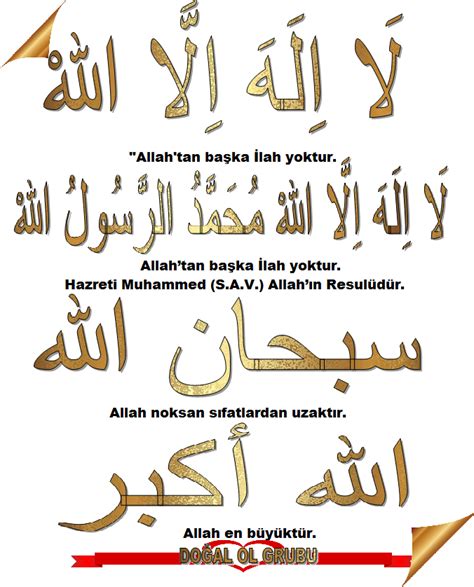 لَا اِلَهَ اِلَّا اللهْ
"Allah'tan başka İlah yoktur.
لَا اِلَهَ اِلَّا اللهْ مُحَمَّدُ الرَّسُولُ اللهْ
Allah’tan başka İlah yoktur.
Hazreti Muhammed (S.A.V.) Allah’ın Resulüdür.
سبحان الله
Allah noksan sıfatlardan uzaktır.
الله أكبر
Allah en büyüktür.
DOĞAL OL GRUBU